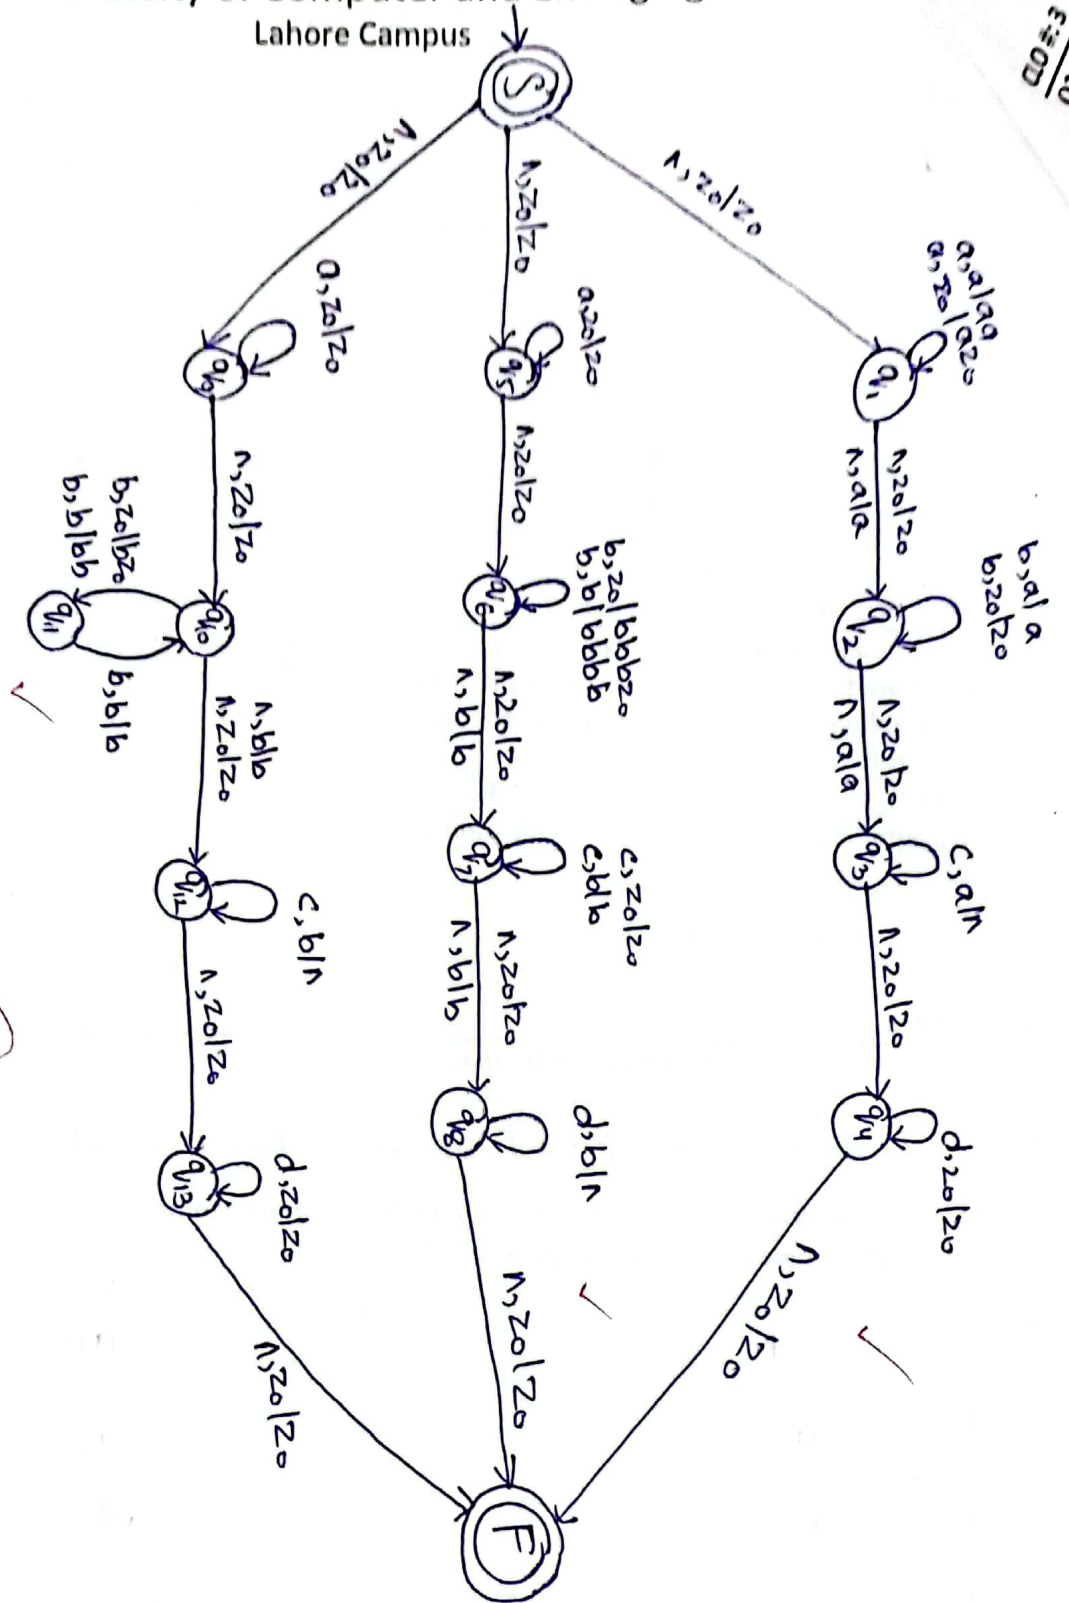 Lahore Campus
S
ʌ,z0/z0
ʌ,z0/z0
ʌ,z0/z0
a,a/aa
a,z0/az0
q1
ʌ,z0/z0
ʌ,a/a
b,a/a
b,z0/z0
q2
ʌ,z0/z0
ʌ,a/a
q3
c,a/ʌ
ʌ,z0/z0
q4
d,z0/z0
ʌ,z0/z0
a,z0/z0
q5
ʌ,z0/z0
b,z0/bbbz0
b,b/bbbb
q6
ʌ,z0/z0
ʌ,b/b
c,z0/z0
c,b/b
q7
ʌ,z0/z0
ʌ,b/b
q8
d,b/ʌ
ʌ,z0/z0
a,z0/z0
q9
ʌ,z0/z0
b,z0/bz0
b,b/bb
q10
q11
b,b/b
ʌ,b/b
ʌ,z0/z0
q12
c,b/ʌ
ʌ,z0/z0
q13
d,z0/z0
ʌ,z0/z0
F